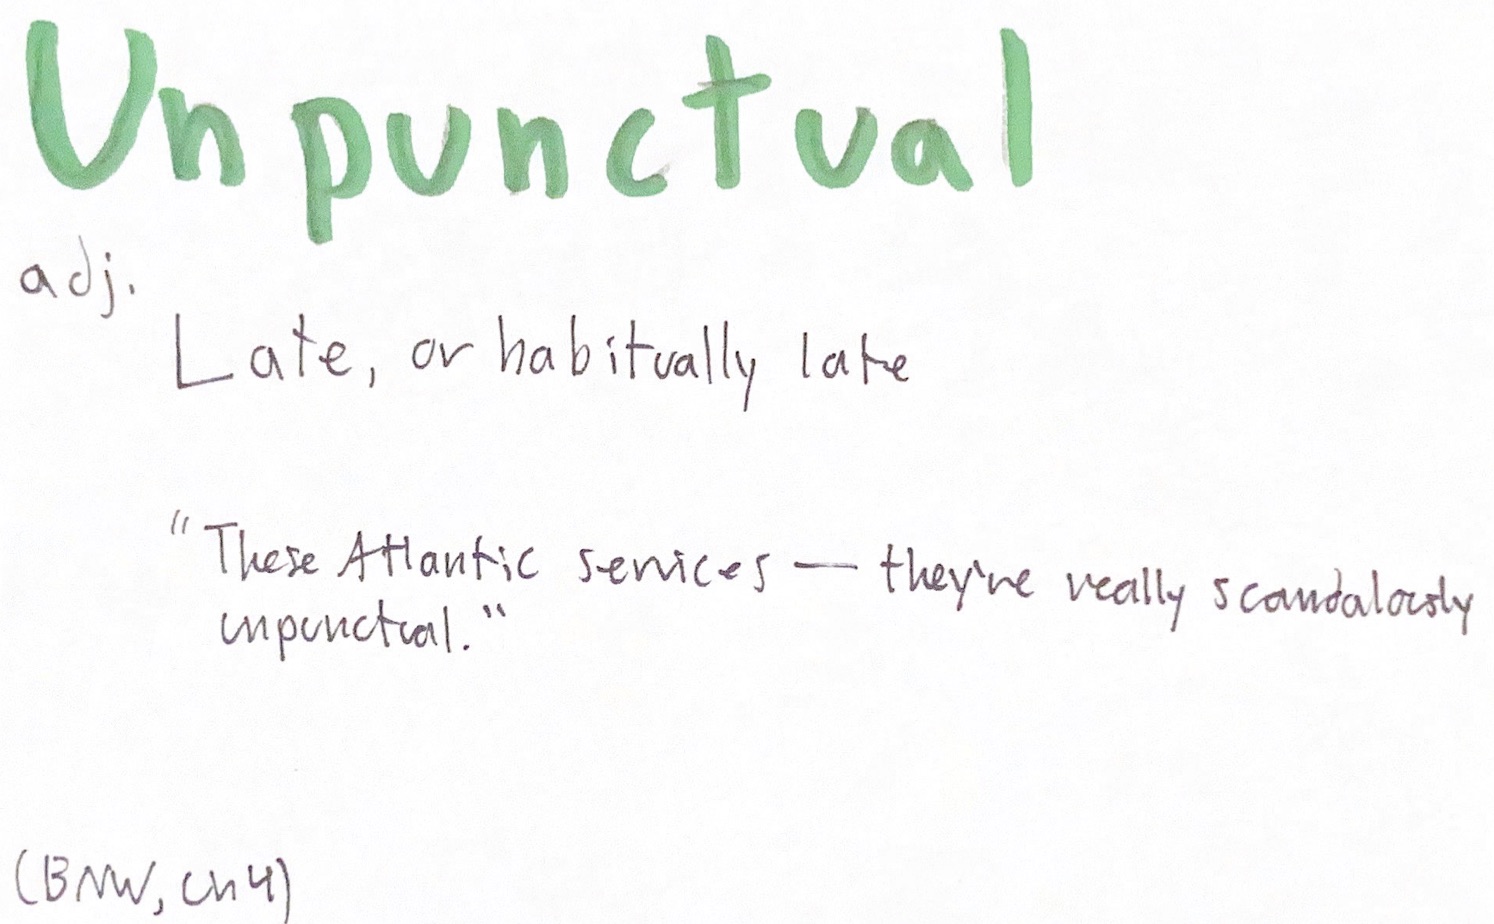 Unpunctual
adj.
Late, or habitually late
"These Atlantic services — they're really scandalously
unpunctual."
(BNW, Ch 4)